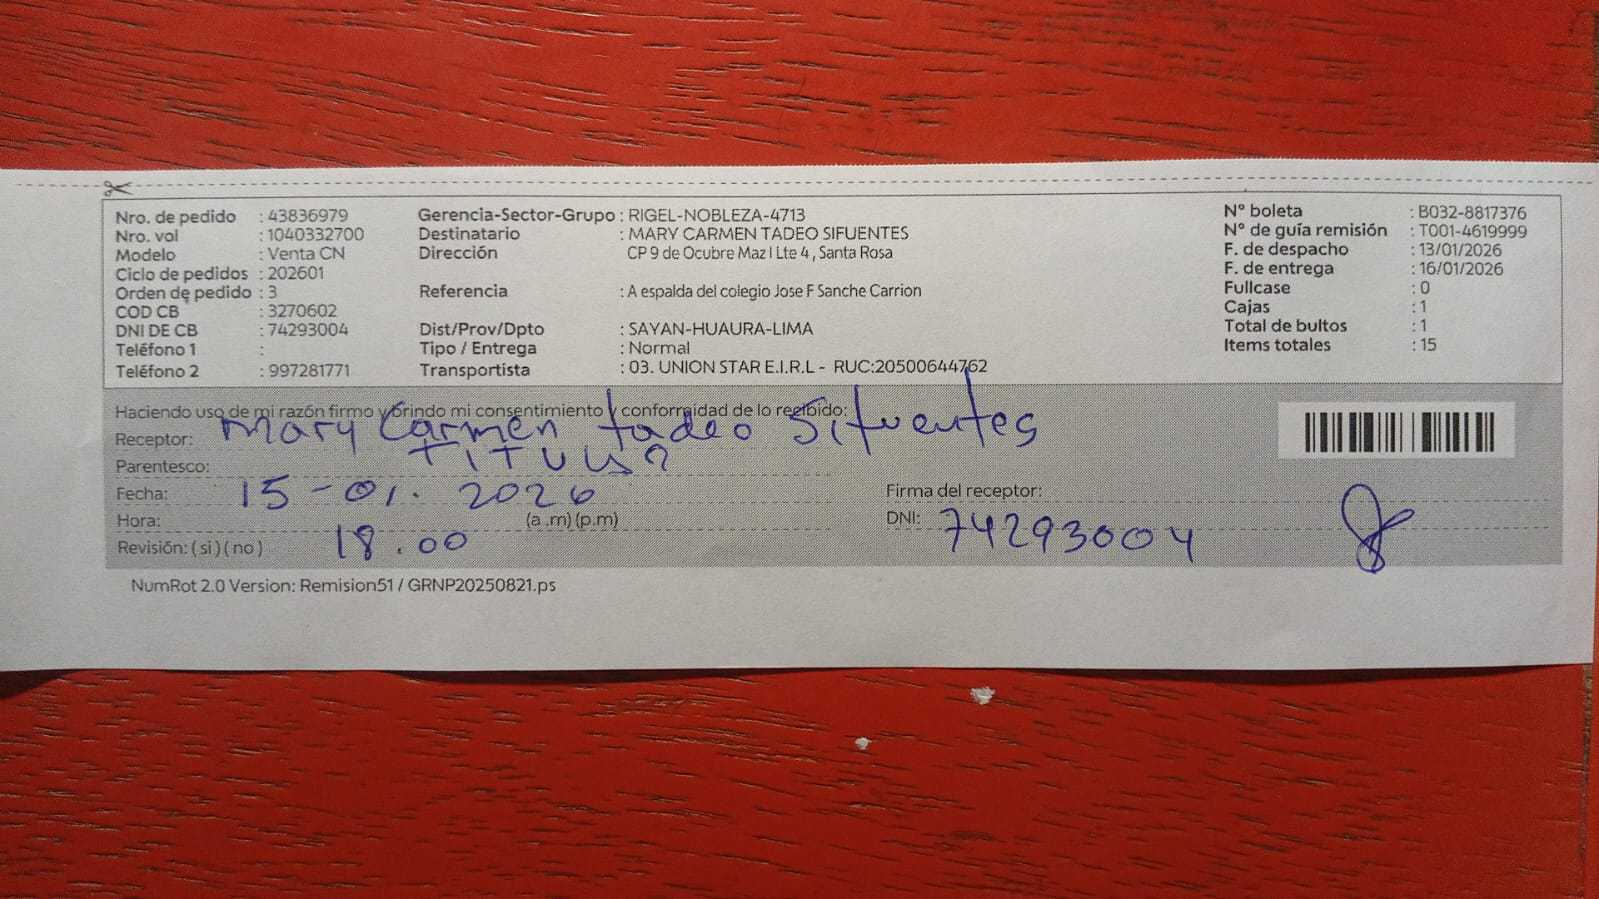 Nro. de pedido : 43836979 Gerencia-Sector-Grupo : RIGEL-NOBLEZA-4713 N° boleta : B032-8817376
Nro. vol : 1040332700 Destinatario : MARY CARMEN TADEO SIFUENTES N° de guía remisión : T001-4619999
Modelo : Venta CN Dirección CP 9 de Ocubre Maz I Lte 4 , Santa Rosa F. de despacho : 13/01/2026
Ciclo de pedidos : 202601 F. de entrega : 16/01/2026
Orden de pedido : 3 Referencia : A espalda del colegio Jose F Sanche Carrion Fullcase : 0
COD CB : 3270602 Cajas : 1
DNI DE CB : 74293004 Dist/Prov/Dpto : SAYAN-HUAURA-LIMA Total de bultos : 1
Teléfono 1 : Tipo / Entrega : Normal Items totales : 15
Teléfono 2 : 997281771 Transportista : 03. UNION STAR E.I.R.L - RUC:20500644762
Haciendo uso de mi razón firmo y brindo mi consentimiento y conformidad de lo recibido:
Receptor: Mary Carmen tadeo Sifuentes
Parentesco:
Fecha: 15-01. 2026 Firma del receptor:
Hora: (a .m) (p.m) DNI: 74293004
Revisión: ( si ) ( no ) 18.00
NumRot 2.0 Version: Remision51 / GRNP20250821.ps